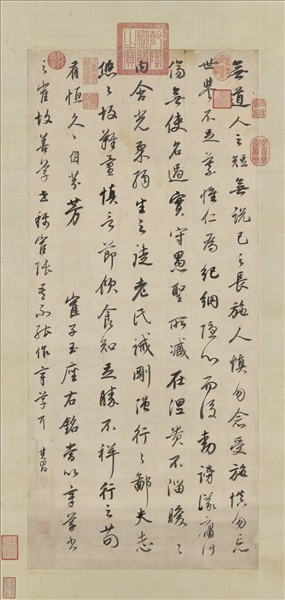 無道人之短無說己之長施人慎勿念受施慎勿忘
世譽不足慕惟仁為紀綱隱心而後動謗議庸何
傷無使名過實守愚聖所臧在涅貴不淄曖〻
內含光柔弱生之徒老氏誡剛強行〻鄙夫志
悠〻故難量慎言節飲食知足勝不祥行之苟
有恆久〻自芬芳 崔子玉座右銘嘗以章草書
之崔故善草書稱崔張 作章草耳 其昌